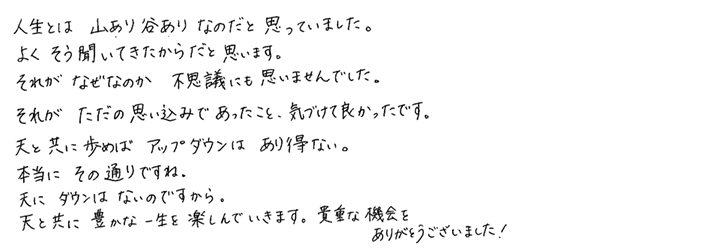 人生とは 山あり谷あり なのだと 思っていました。
よく そう聞いてきたからだと 思います。
それが なぜなのか 不思議にも 思いませんでした。
それが ただの 思い込みで あったこと、気づけて 良かったです。
天と 共に 歩めば アップダウンは あり得ない。
本当に その 通りですね。
天に ダウンは ないのですから。
天と 共に 豊かな 一生を 楽しんで いきます。貴重な 機会を
ありがとうございました！